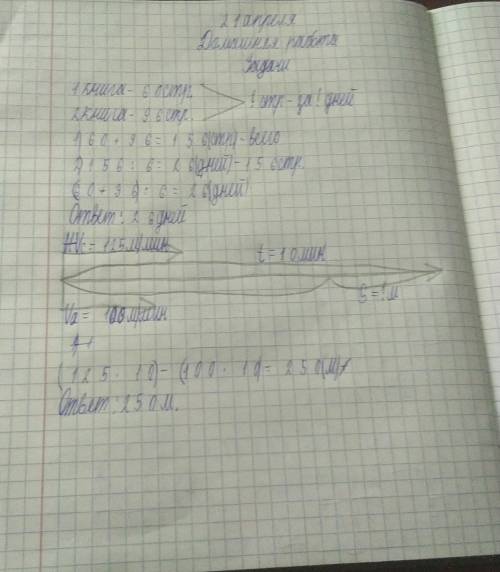 21 апреля
Домашняя работа
Задачи
1 книга - 60 стр.
2 книга - 96 стр.
? стр - за ? дней
1) 60 + 96 = 156 (стр) - всего
2) 156 : 6 = 26 (дней) - 156 стр.
(60 + 96) : 6 = 26 (дней)
Ответ: 26 дней
V₁ = 125 м/мин
t = 10 мин
S = ? м
V₂ = 100 м/мин
(125 · 10) - (100 · 10) = 250 (м)
Ответ: 250 м.